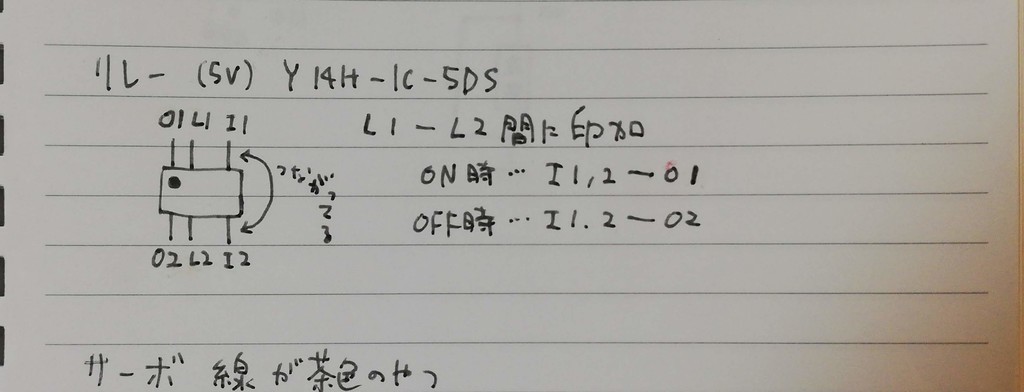 リレー (5V) Y14H-1C-5DS
O1 L1 I1
つながってる
O2 L2 I2
L1-L2間に印加
ON時… I1,2-O1
OFF時… I1.2-O2
サーボ 線が茶色のやつ